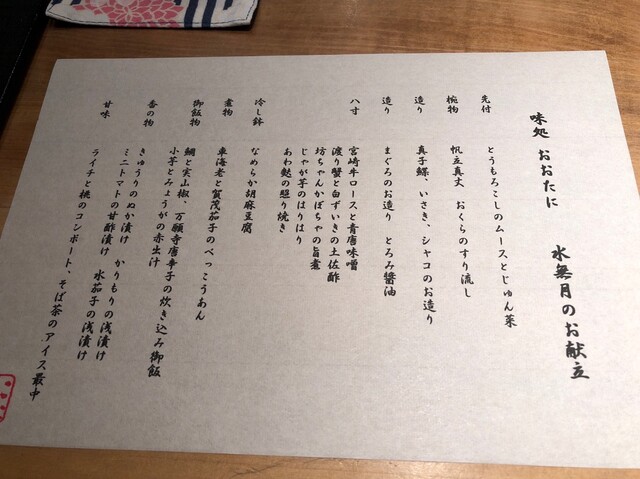 味処 おおたに 水無月のお献立
先付 とうもろこしのムースとじゅん菜
椀物 帆立真丈 おくらのすり流し
造り 真子鰈、いさき、シャコのお造り
造り まぐろのお造り とろみ醤油
八寸 宮崎牛ロースと青唐味噌
渡り蟹と白ずいきの土佐酢
坊ちゃんかぼちゃの旨煮
じゃが芋のはりはり
あわ麩の照り焼き
冷し鉢 なめらか胡麻豆腐
煮物 車海老と賀茂茄子のべっこうあん
御飯物 鯛と実山椒、万願寺唐辛子の炊き込み御飯
小芋とみょうがの赤出汁
香の物 きゅうりのぬか漬け かりもりの浅漬け
ミニトマトの甘酢漬け 水茄子の浅漬け
甘味 ライチと桃のコンポート、そば茶のアイス最中